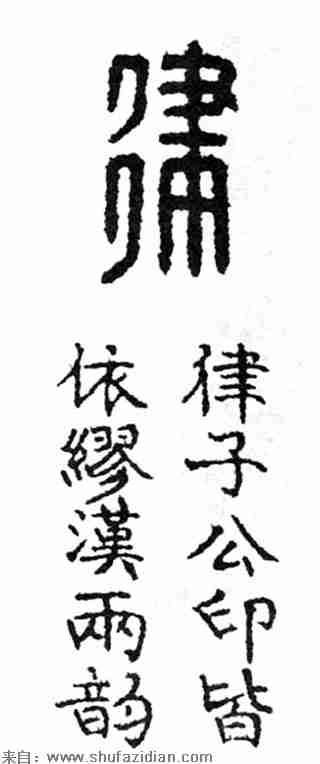 律
律子公印皆
依繆漢兩韵
来自：www.shufazidian.com